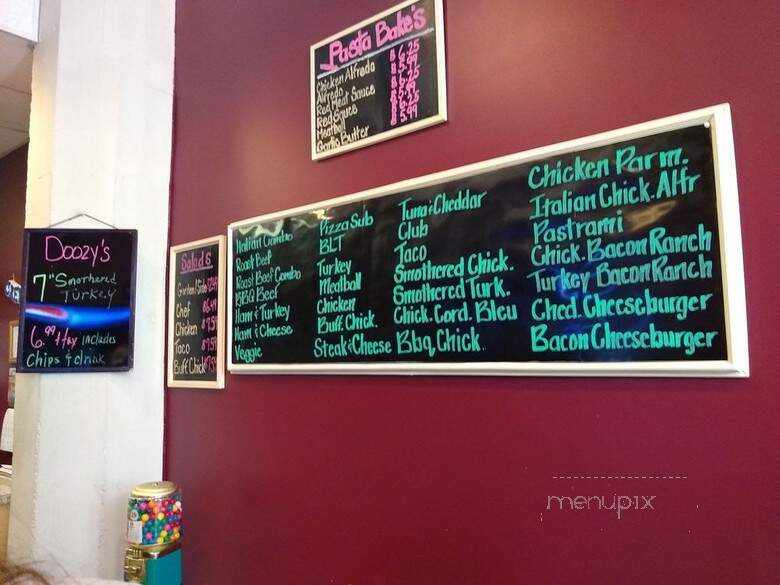 Pasta Bake's
Chicken Alfredo 6.25
Alfredo 5.99
Red Meat Sauce
Red Sauce
Meatball
Garlic Butter 5.99
Doozy's
7" Smothered
Turkey
6.99 + tax includes
Chips & drink
Salads
Garden/Side
Chef
Chicken
Taco
Buff Chick
Italian Combo
Roast Beef
Roast Beef Combo
BBQ Beef
Ham & Turkey
Ham & Cheese
Veggie
Pizza Sub
BLT
Turkey
Meatball
Chicken
Buff. Chick.
Steak & Cheese
Tuna & Cheddar
Club
Taco
Smothered Chick.
Smothered Turk.
Chick. Cord. Bleu
Bbq Chick.
Chicken Parm.
Italian Chick. Alfr
Pastrami
Chick. Bacon Ranch
Turkey Bacon Ranch
Ched. Cheeseburger
Bacon Cheeseburger
menupix